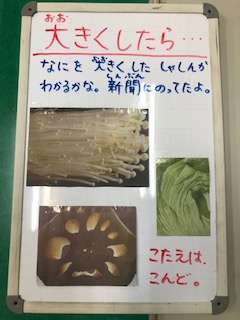 おお
大きくしたら…
なにを 大きくした しゃしんか
わかるかな。新聞にのってたよ。
しんぶん
こたえは、
こんど。